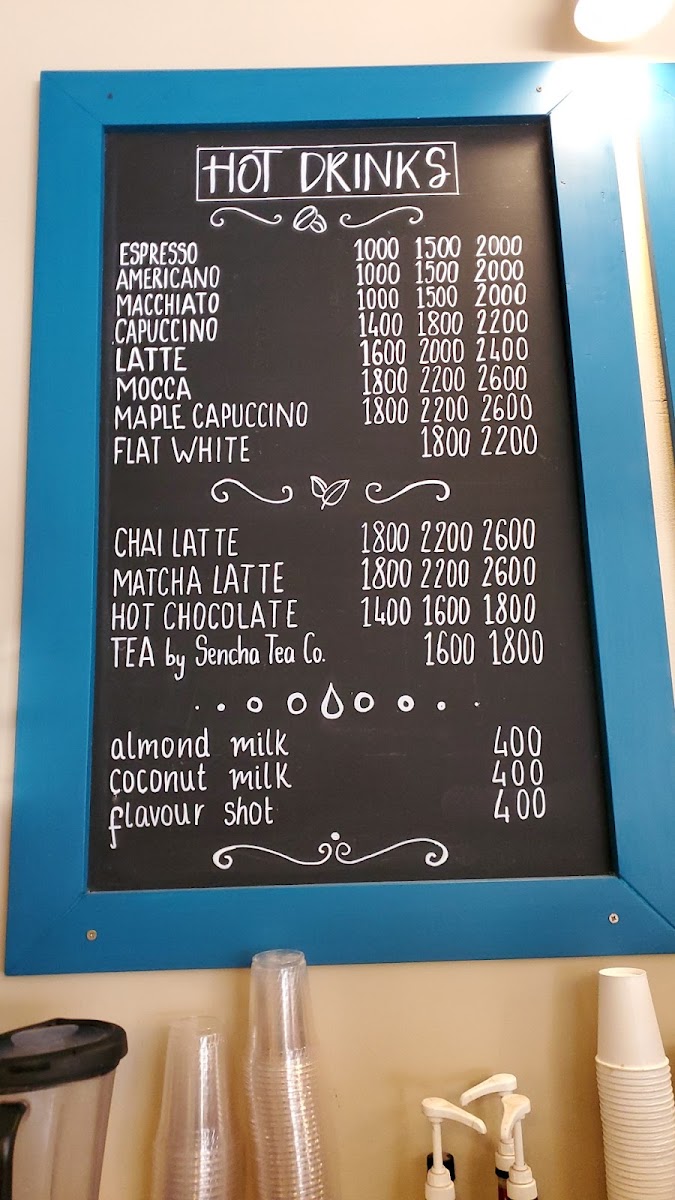 HOT DRINKS
ESPRESSO 1000 1500 2000
AMERICANO 1000 1500 2000
MACCHIATO 1000 1500 2000
CAPUCCINO 1400 1800 2200
LATTE 1600 2000 2400
MOCCA 1800 2200 2600
MAPLE CAPUCCINO 1800 2200 2600
FLAT WHITE 1800 2200
CHAI LATTE 1800 2200 2600
MATCHA LATTE 1800 2200 2600
HOT CHOCOLATE 1400 1600 1800
TEA by Sencha Tea Co. 1600 1800
almond milk 400
coconut milk 400
flavour shot 400